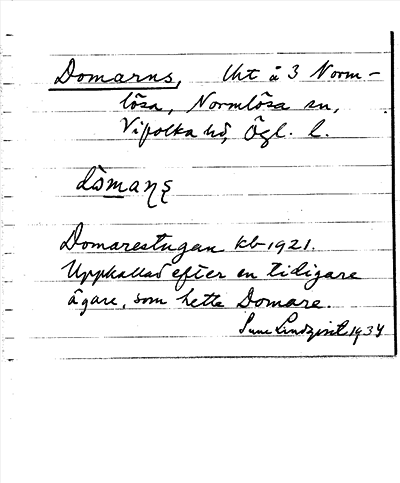 Domarns, Lht å 3 Norm-
lösa, Normlösa sn,
Vifolka hd, Ögl. l.
Domarestugan kb 1921.
Uppkallad efter en tidigare
ägare, som hette Domare.
Sune Lindqvist 1934